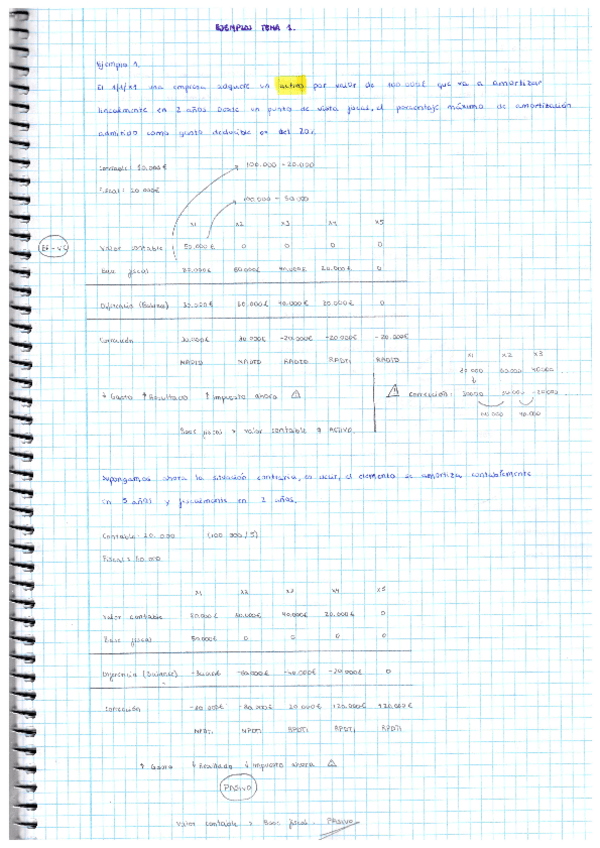 EJEMPLOS TEMA 1.
Ejemplo 1.
El 1/1/X1 una empresa adquiere un activo por valor de 100.000€ que va a amortizar
linealmente en 2 años. Desde un punto de vista fiscal, el porcentaje máximo de amortización
admitido como gasto deducible es del 20%.
Contable: 50.000€
100.000 - 20.000
Fiscal: 20.000€
100.000 - 50.000
X1 X2 X3 X4 X5
BF - VC
Valor contable 50.000€ 0 0 0 0
Base fiscal 80.000€ 60.000€ 40.000€ 20.000€ 0
Diferencia (Balance) 30.000€ 60.000€ 40.000€ 20.000€ 0
Corrección 30.000€ 30.000€ -20.000€ -20.000€ -20.000€
NADTD NADTD RADTD RADTD
X1 X2 X3
30.000 60.000 40.000
↑ Gasto Resultado Impuesto ahora
Corrección: 30.000 30.000 -20.000
Base fiscal > Valor contable ACTIVO.
Supongamos ahora la situación contraria, es decir, el elemento se amortiza contablemente
en 5 años y fiscalmente en 2 años.
Contable: 20.000 (100.000/5)
Fiscal: 50.000
X1 X2 X3 X4 X5
Valor contable 80.000€ 60.000€ 40.000€ 20.000€ 0
Base fiscal 50.000€ 0 0 0 0
Diferencia (Balance) -30.000€ -60.000€ -40.000€ -20.000€ 0
Corrección -30.000€ -30.000€ 20.000€
NPDTI NPDTI RPDTI RPDTI RPDTI
↑ Gasto ↓ Resultado ↓ Impuesto ahora
PASIVO
Valor contable > Base fiscal. PASIVO